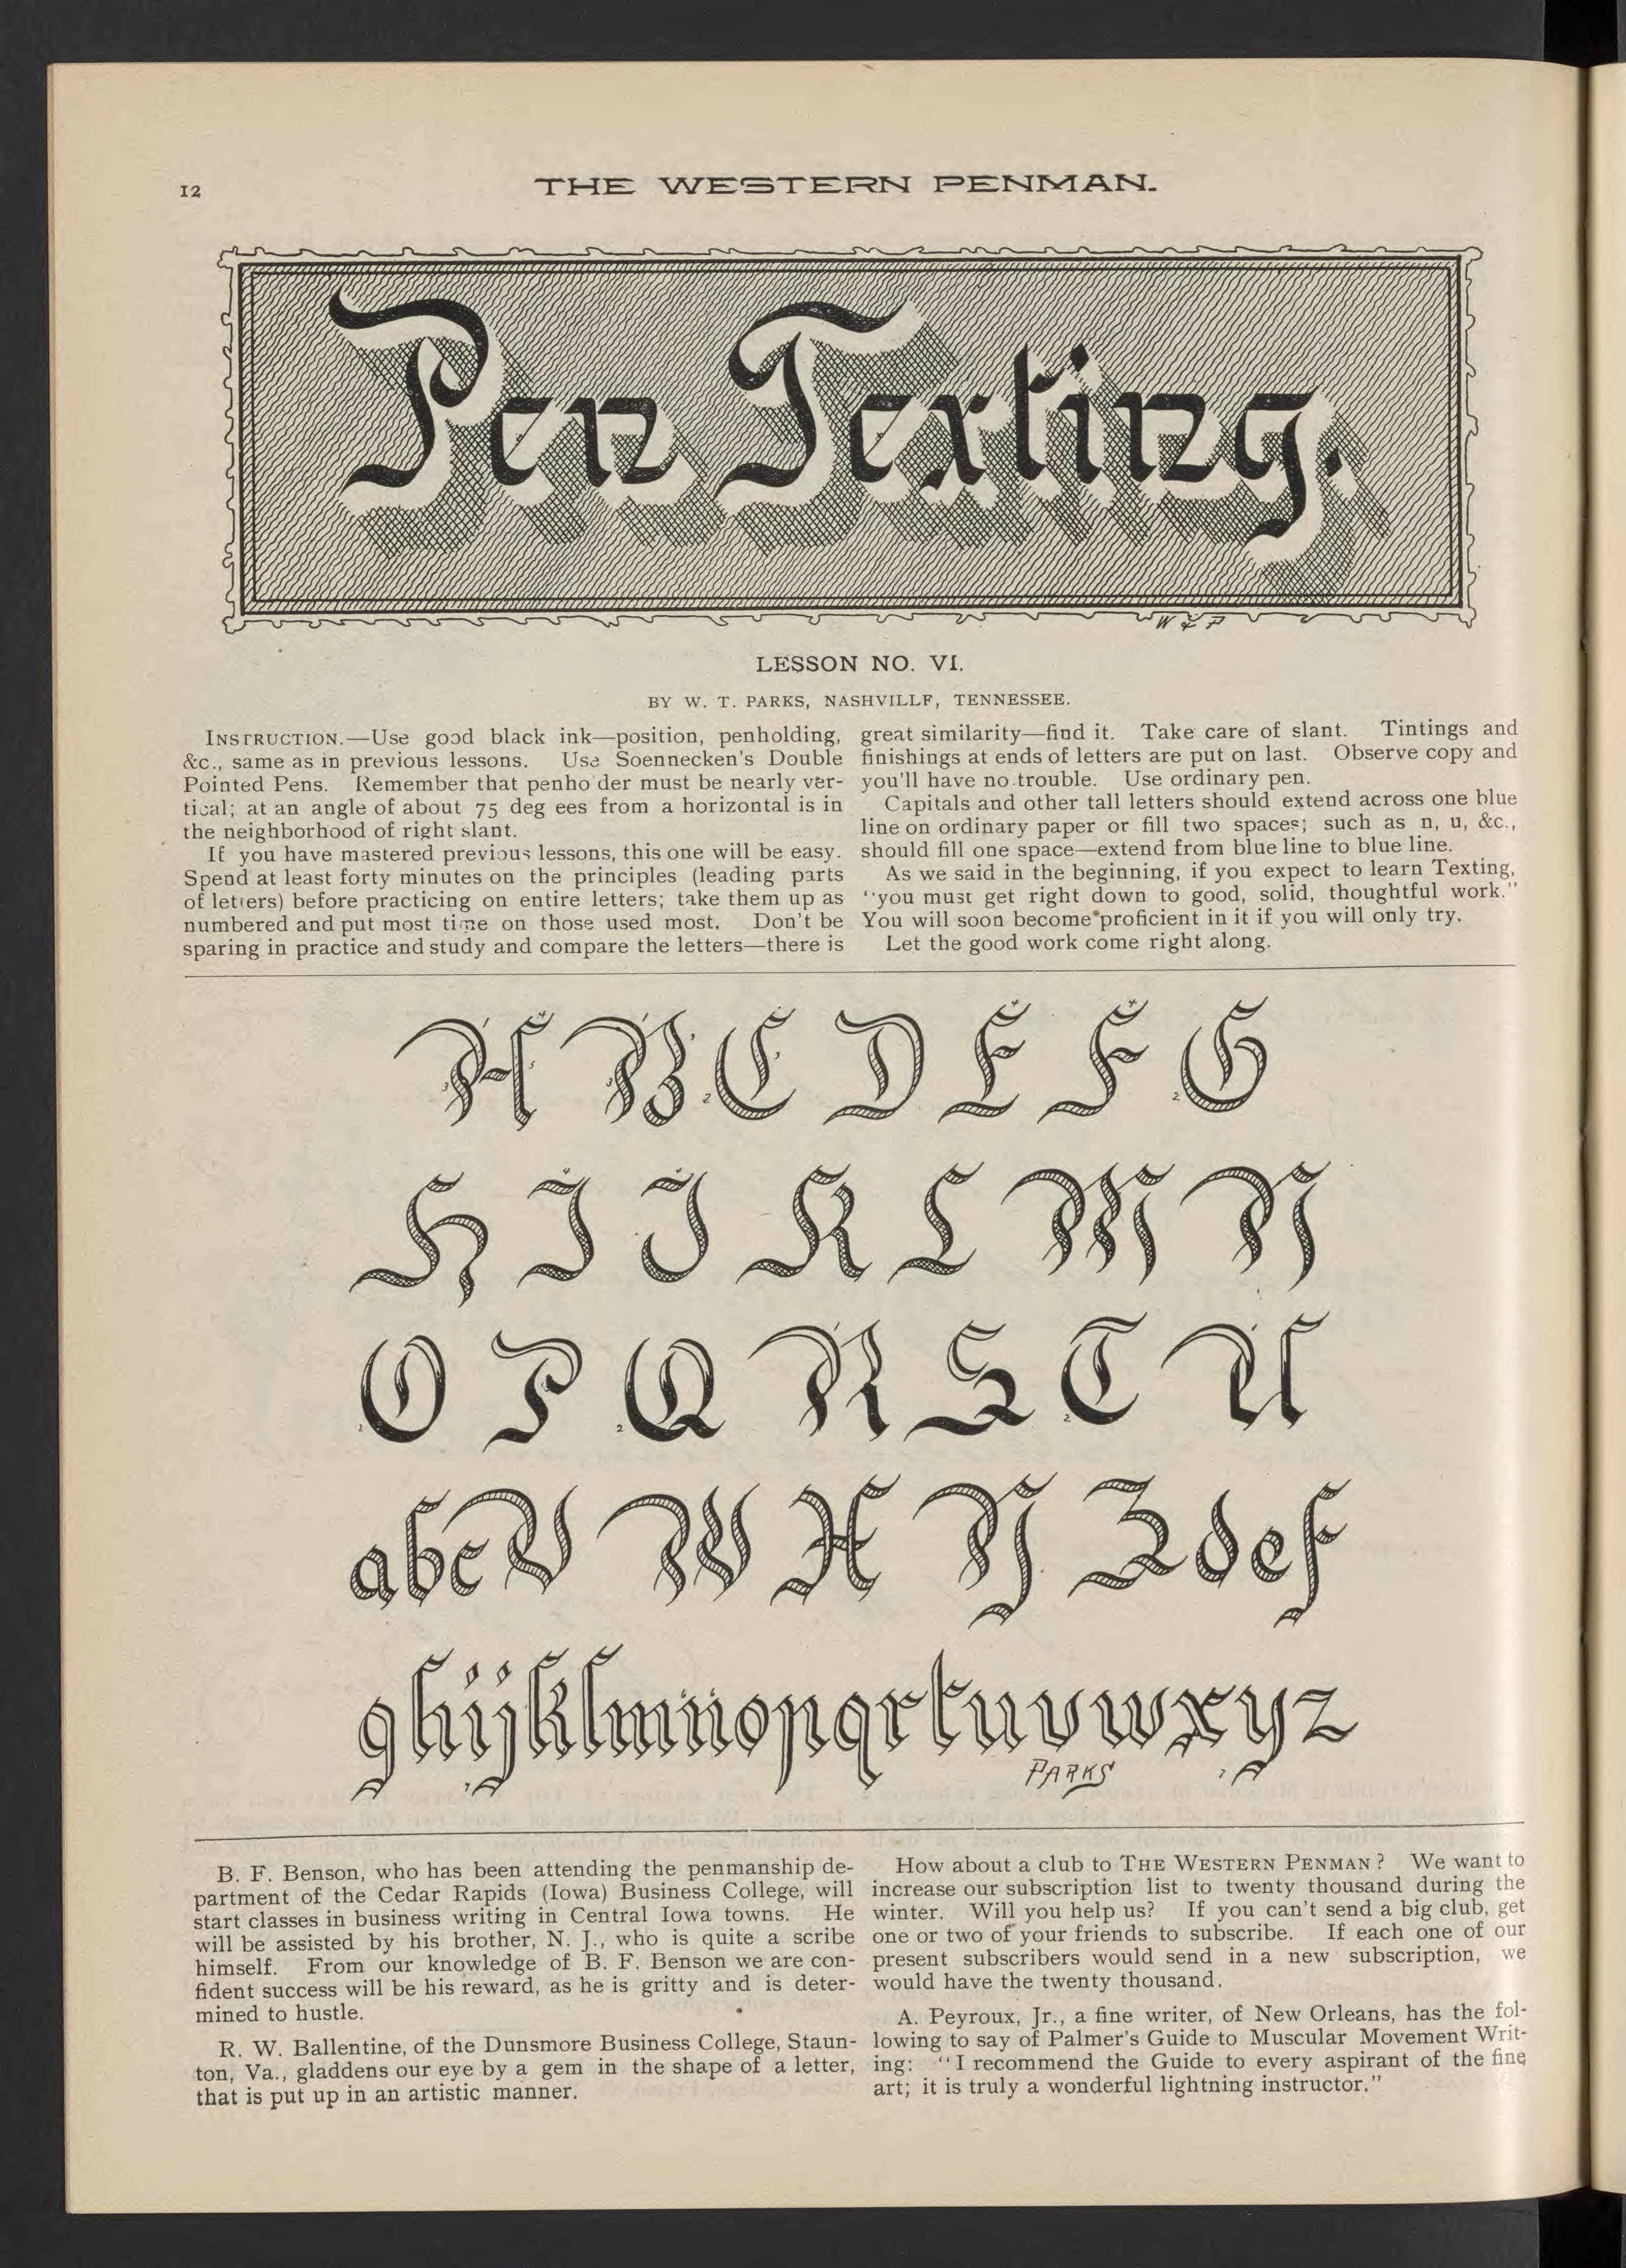 12
THE WESTERN PENMAN.
Pen Texting.
LESSON NO. VI.
BY W. T. PARKS, NASHVILLF, TENNESSEE.
INSTRUCTION.—Use good black ink—position, penholding,
&c., same as in previous lessons. Use Soennecken's Double
Pointed Pens. Remember that penho der must be nearly ver-
tical; at an angle of about 75 deg ees from a horizontal is in
the neighborhood of right slant.
If you have mastered previous lessons, this one will be easy.
Spend at least forty minutes on the principles (leading parts
of letters) before practicing on entire letters; take them up as
numbered and put most time on those used most. Don't be
sparing in practice and study and compare the letters—there is
great similarity—find it. Take care of slant. Tintings and
finishings at ends of letters are put on last. Observe copy and
you'll have no trouble. Use ordinary pen.
Capitals and other tall letters should extend across one blue
line on ordinary paper or fill two spaces; such as n, u, &c.,
should fill one space—extend from blue line to blue line.
As we said in the beginning, if you expect to learn Texting,
"you must get right down to good, solid, thoughtful work."
You will soon become proficient in it if you will only try.
Let the good work come right along.
A B C D E F G
H I J K L M N
O P Q R S T U
abc V W X Y Z def
ghijklmnopqrtuvwxyz
PARKS
B. F. Benson, who has been attending the penmanship de-
partment of the Cedar Rapids (Iowa) Business College, will
start classes in business writing in Central Iowa towns. He
will be assisted by his brother, N. J., who is quite a scribe
himself. From our knowledge of B. F. Benson we are con-
fident success will be his reward, as he is gritty and is deter-
mined to hustle.
R. W. Ballentine, of the Dunsmore Business College, Staun-
ton, Va., gladdens our eye by a gem in the shape of a letter,
that is put up in an artistic manner.
How about a club to THE WESTERN PENMAN? We want to
increase our subscription list to twenty thousand during the
winter. Will you help us? If you can't send a big club, get
one or two of your friends to subscribe. If each one of our
present subscribers would send in a new subscription, we
would have the twenty thousand.
A. Peyroux, Jr., a fine writer, of New Orleans, has the fol-
lowing to say of Palmer's Guide to Muscular Movement Writ-
ing: "I recommend the Guide to every aspirant of the fine
art; it is truly a wonderful lightning instructor."